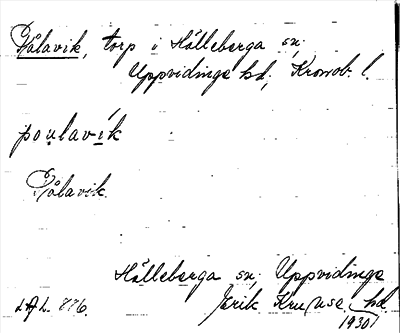 Pålavik, torp i Hälleberga sn;
Uppvidinge hd, Kronob. l.
poulavík
Pålavik.
Hälleberga sn, Uppvidinge
Erik Kruuse. hd.
LAL. 776.
1930